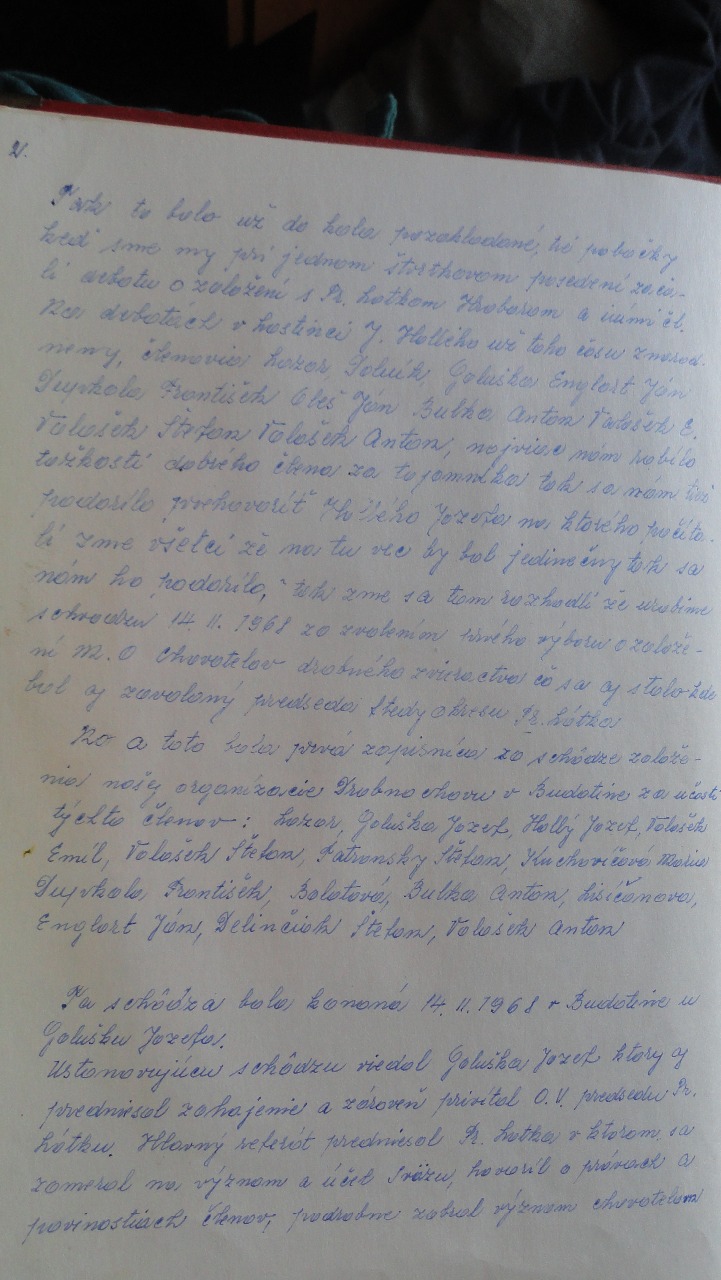 2.
Tak to bolo už do kola pozakladané, tie pobočky
keď sme my pri jednom štvrtkovom posedení zača-
li debatu o založení s Pr. Látkom Hrobarom a inmi čl.
Na debatách v hostinci J. Hollého už toho času znarod.
neny, členovia Lazar, Goluška Englart Ján
Dupkala František Oleš Ján Bulka Anton Valašek E.
Valašek Štefan Valašek Anton, najviac nám robilo
ťažkosti dobrého člena za tajomníka tak sa nám tiež
podarilo prehovoriť Hollého Jozefa na ktorého počíta-
li zme všetci že na tu vec by bol jedinečny tak sa
nám ho podarilo, tak zme sa tam rozhodli že urobime
schvodzu 14. II. 1968 zo zvolením prvého výboru o založe-
ní M. O Chovatelov drobného zvieractva čo sa aj stalo kde
bol aj zavolaný predseda Pr. Látka
No a toto bola prvá zapisnica zo schôdze založe-
nia našej organizacie Drobnochovu v Budatine za účasti
týchto členov: Lazar, Goluška Jozef, Hollý Jozef, Valašek
Emil, Valašek Štefan, Patronsky Štefan, Kuchovičová Maria
Dupkala František, Balatová, Bulka Anton, Lisičanova,
Englart Ján, Delinčiak Štefan, Valašek Anton
Ta schôdza bola konaná 14. II. 1968 v Budatine u
Golušku Jozefa.
Ustanovujúcu schôdzu viedol Goluška Jozef ktorý aj
predniesol zahajenie a zároveň privital O.V. predsedu Pr.
Látku. Hlavný referát predniesol Pr. Latka v ktorom sa
zameral na význam a účel Sväzu, hovoril o právach a
povinostiach členov, podrobne zobral význam chovatelom